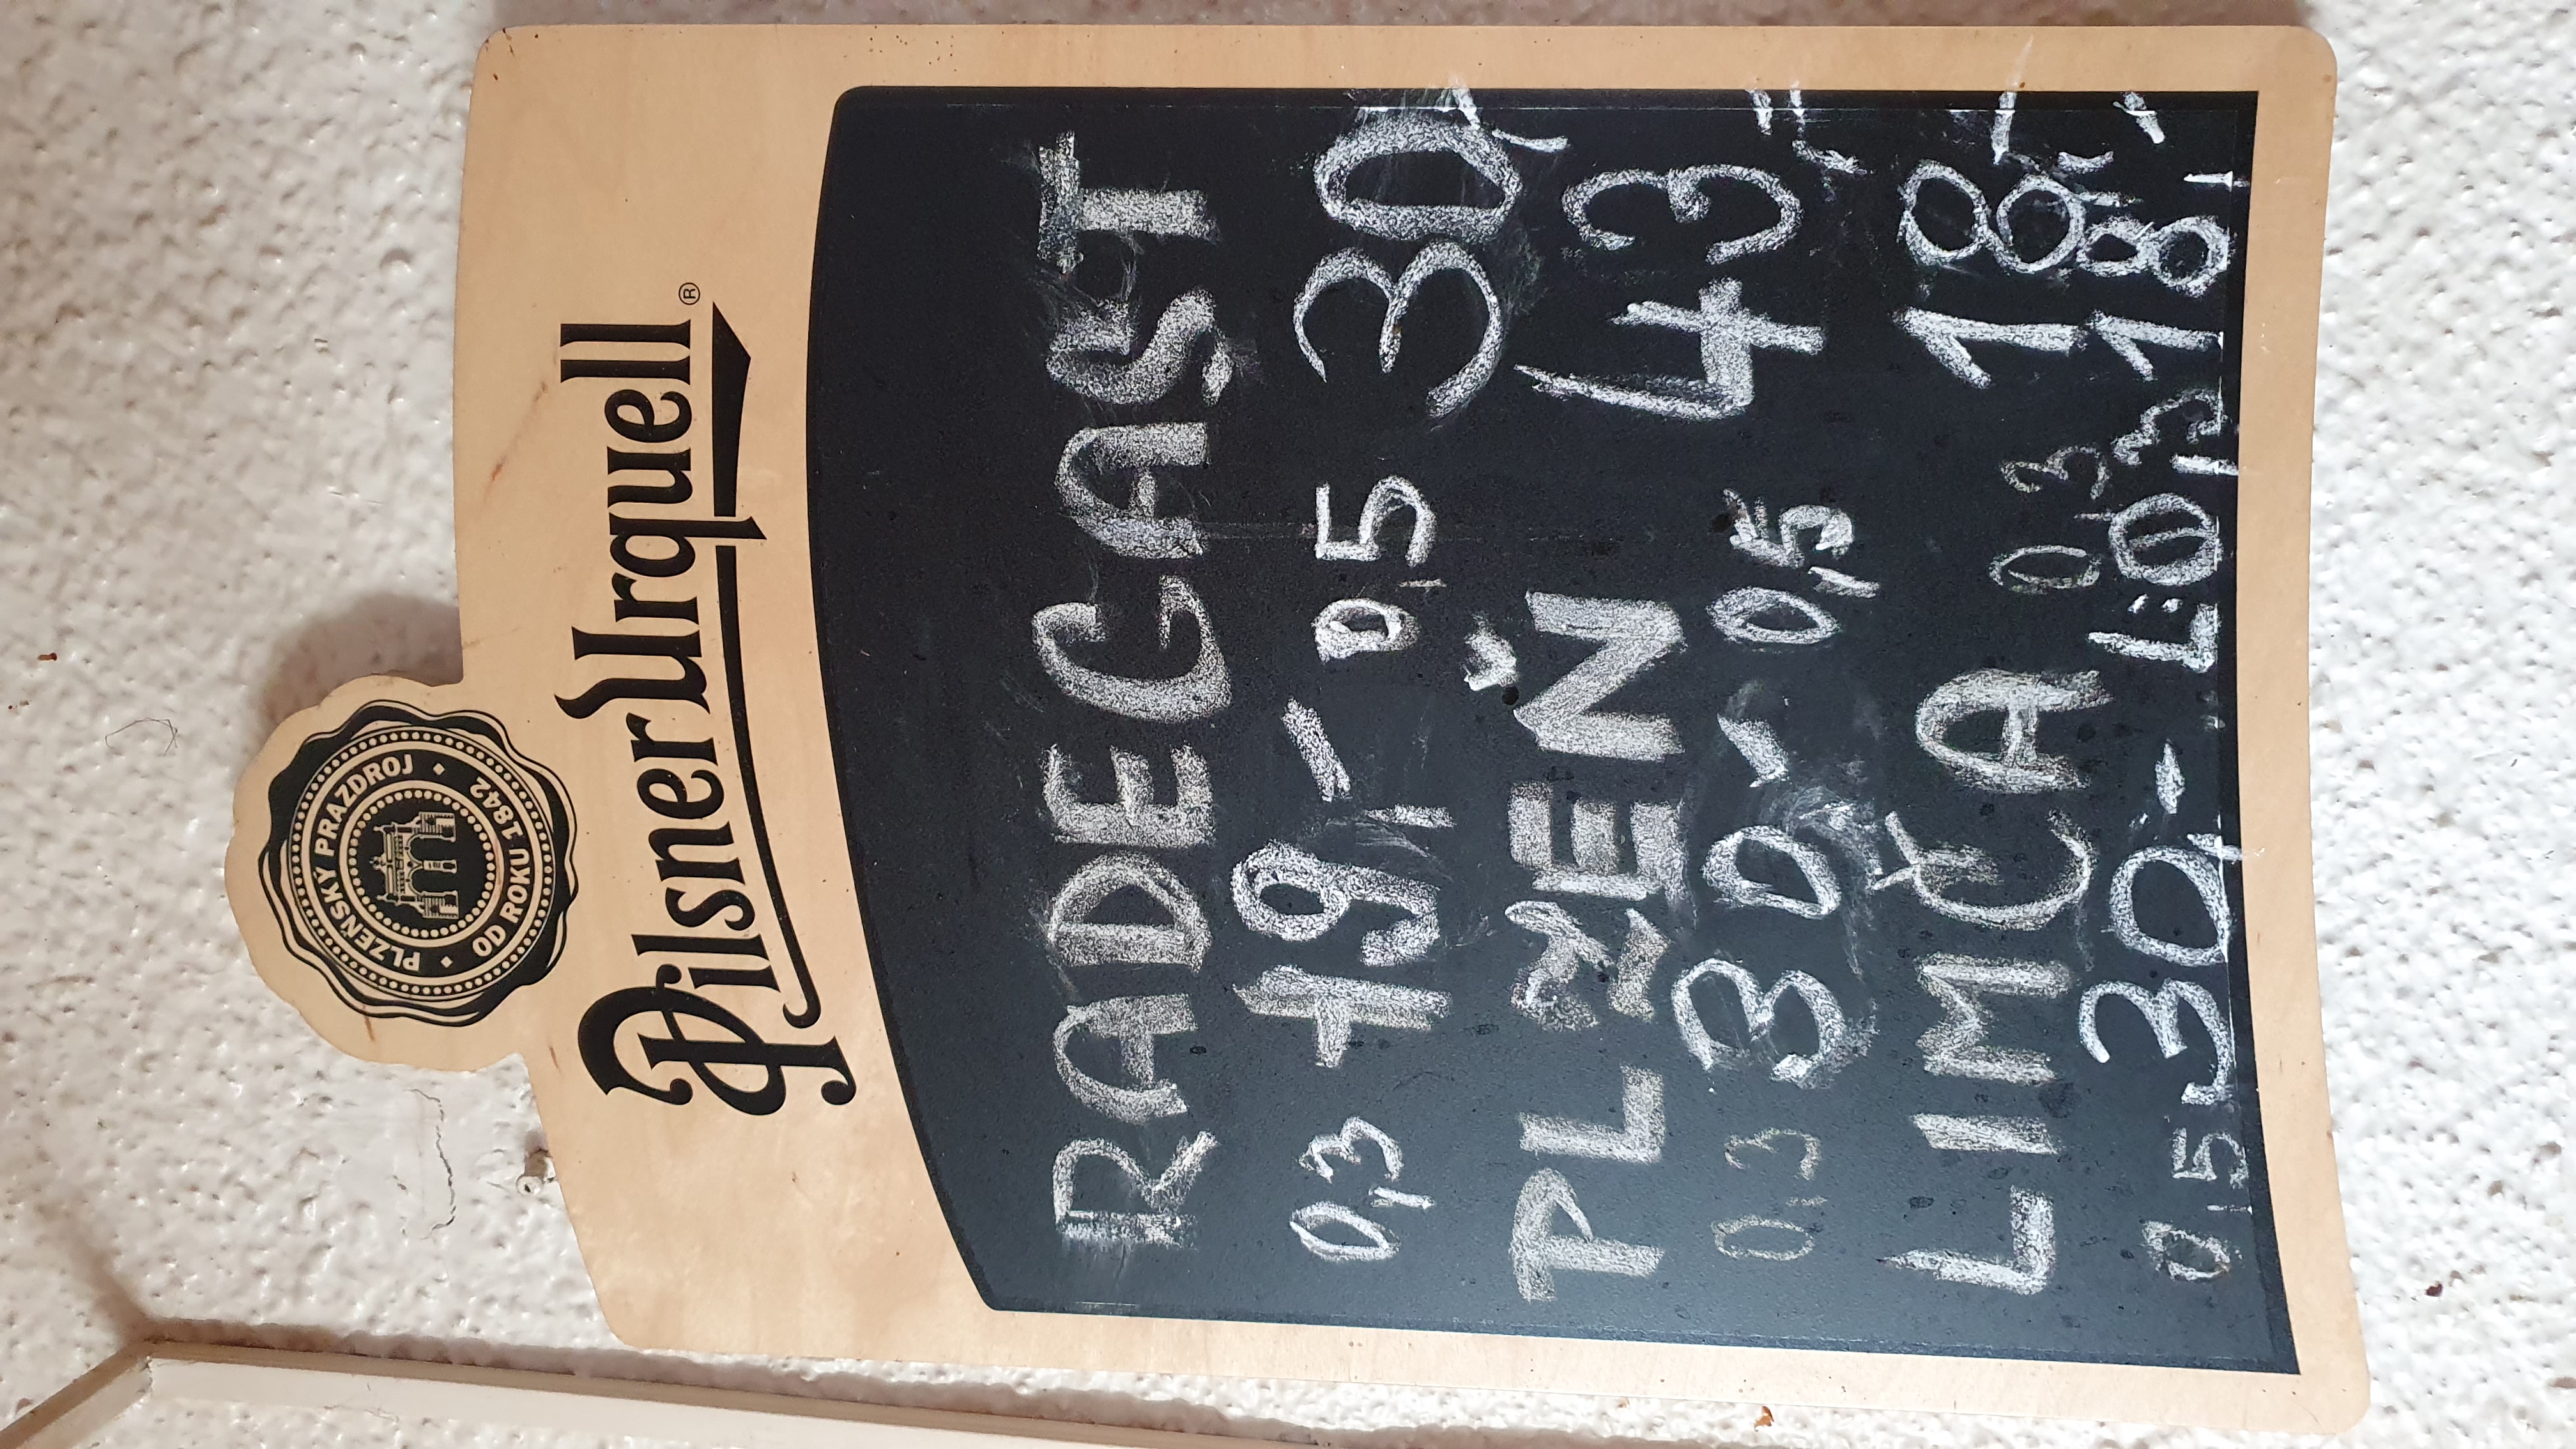 PLZEŇSKÝ PRAZDROJ
OD ROKU 1842
Pilsner Urquell®
RADEGAST
0,3 19,- 0,5 30,-
PLZEŇ
0,3 30,- 0,5 43,-
LIMČA 0,3 18,-
0,5 30,- L:0,3 18,-